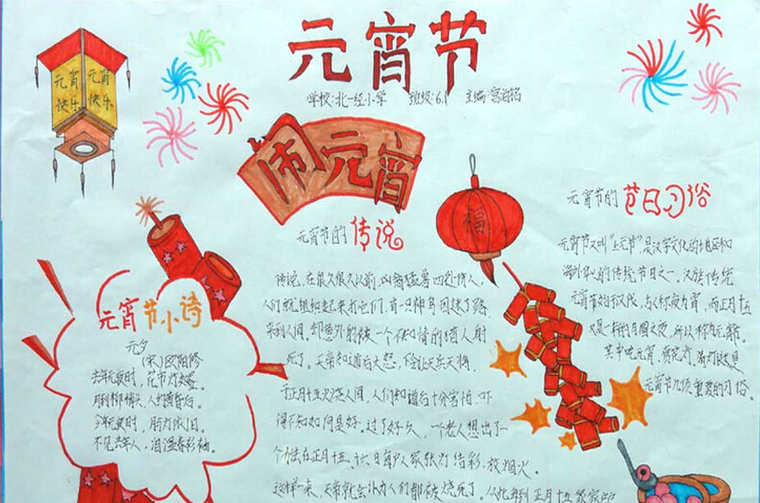 元宵节
学校:北一经小学 班级:6.1 主编:
元宵快乐
元宵快乐
闹元宵
福
元宵节的传说
传说,在很久很久以前,凶禽猛兽四处伤人,
人们就组织起来打它们,有一只神鸟因迷了路
来到人间,却意外的被一个不知情的猎人射
死了。天帝知道后大怒,
于正月十五火烧人间,人们知道后十分害怕,
得不知如何是好。过了好久,一个老人想出了一
个法在正月十五、 日每户人家张灯结彩、放烟火。
这样一来,天帝就会以为人们都被烧死了。从此每到正月十五
元宵节的节日习俗
元宵节又叫"上元节",是汉字文化的地区和
海外华人的传统节日之一。汉族传统
元宵节始于汉代, 夜为宵,而正月十五
又是一年的月圆之夜,所以称为元宵。
其中吃元宵、赏花灯、猜灯谜是
元宵节几项重要的习俗。
元宵节小诗
元夕
(宋)欧阳修
去年元夜时,花市灯如昼。
月到柳梢头,人约黄昏后。
今年元夜时,月与灯依旧。
不见去年人,泪湿春衫袖。